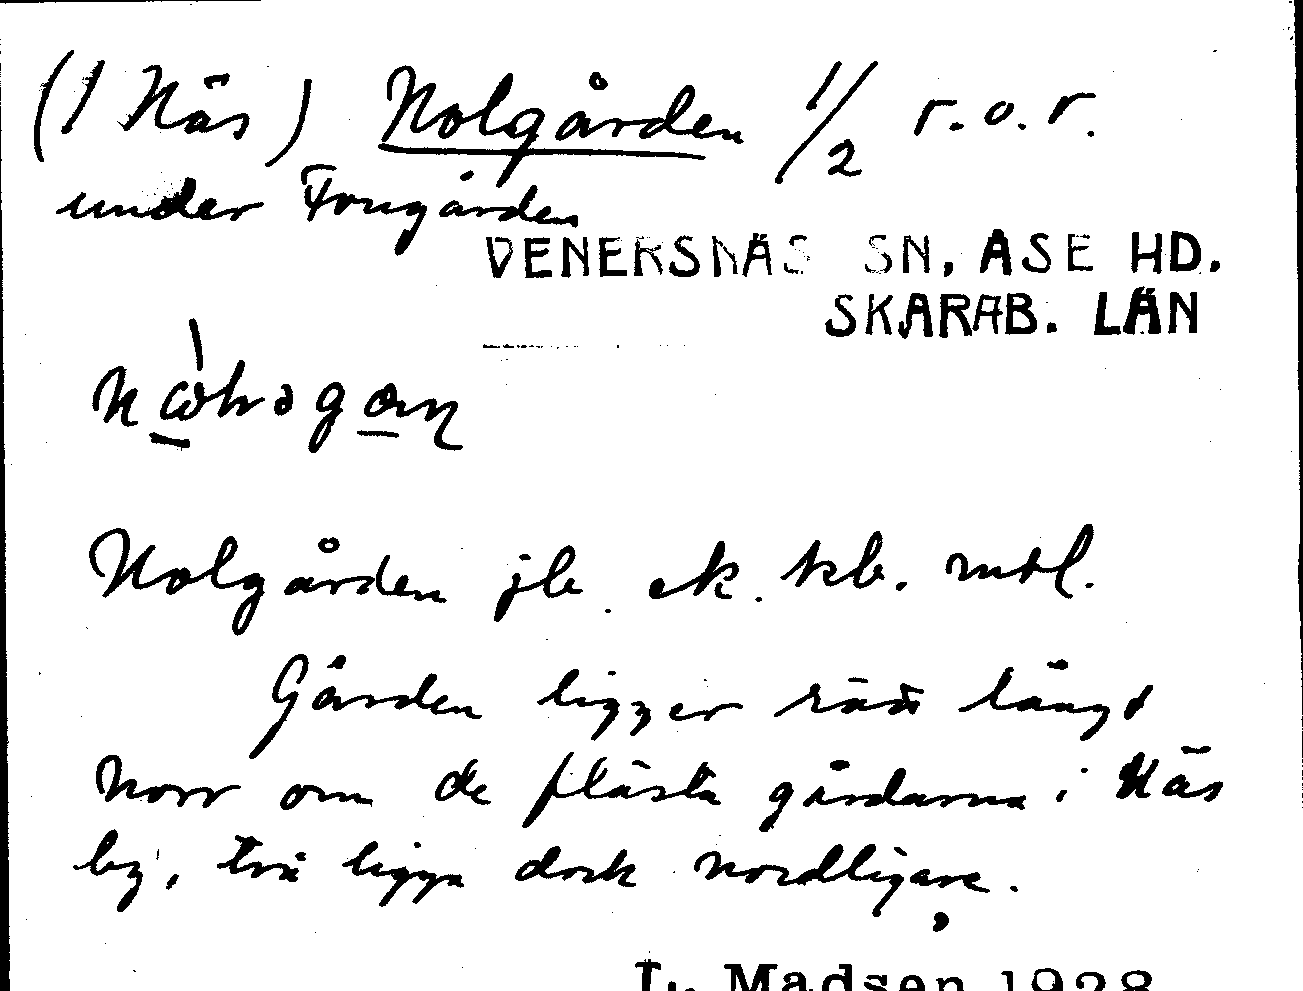 (1 Näs) Nolgården 1/2 r.o.r.
under Fougården
VENERSNÄS SN, ÅSE HD.
SKARAB. LÄN
Nolgården jb. ek. kb. mtl.
Gården ligger rätt långt
norr om de flästa gårdarna i Näs
by, två ligga dock nordligare.
L. Madsen 1928